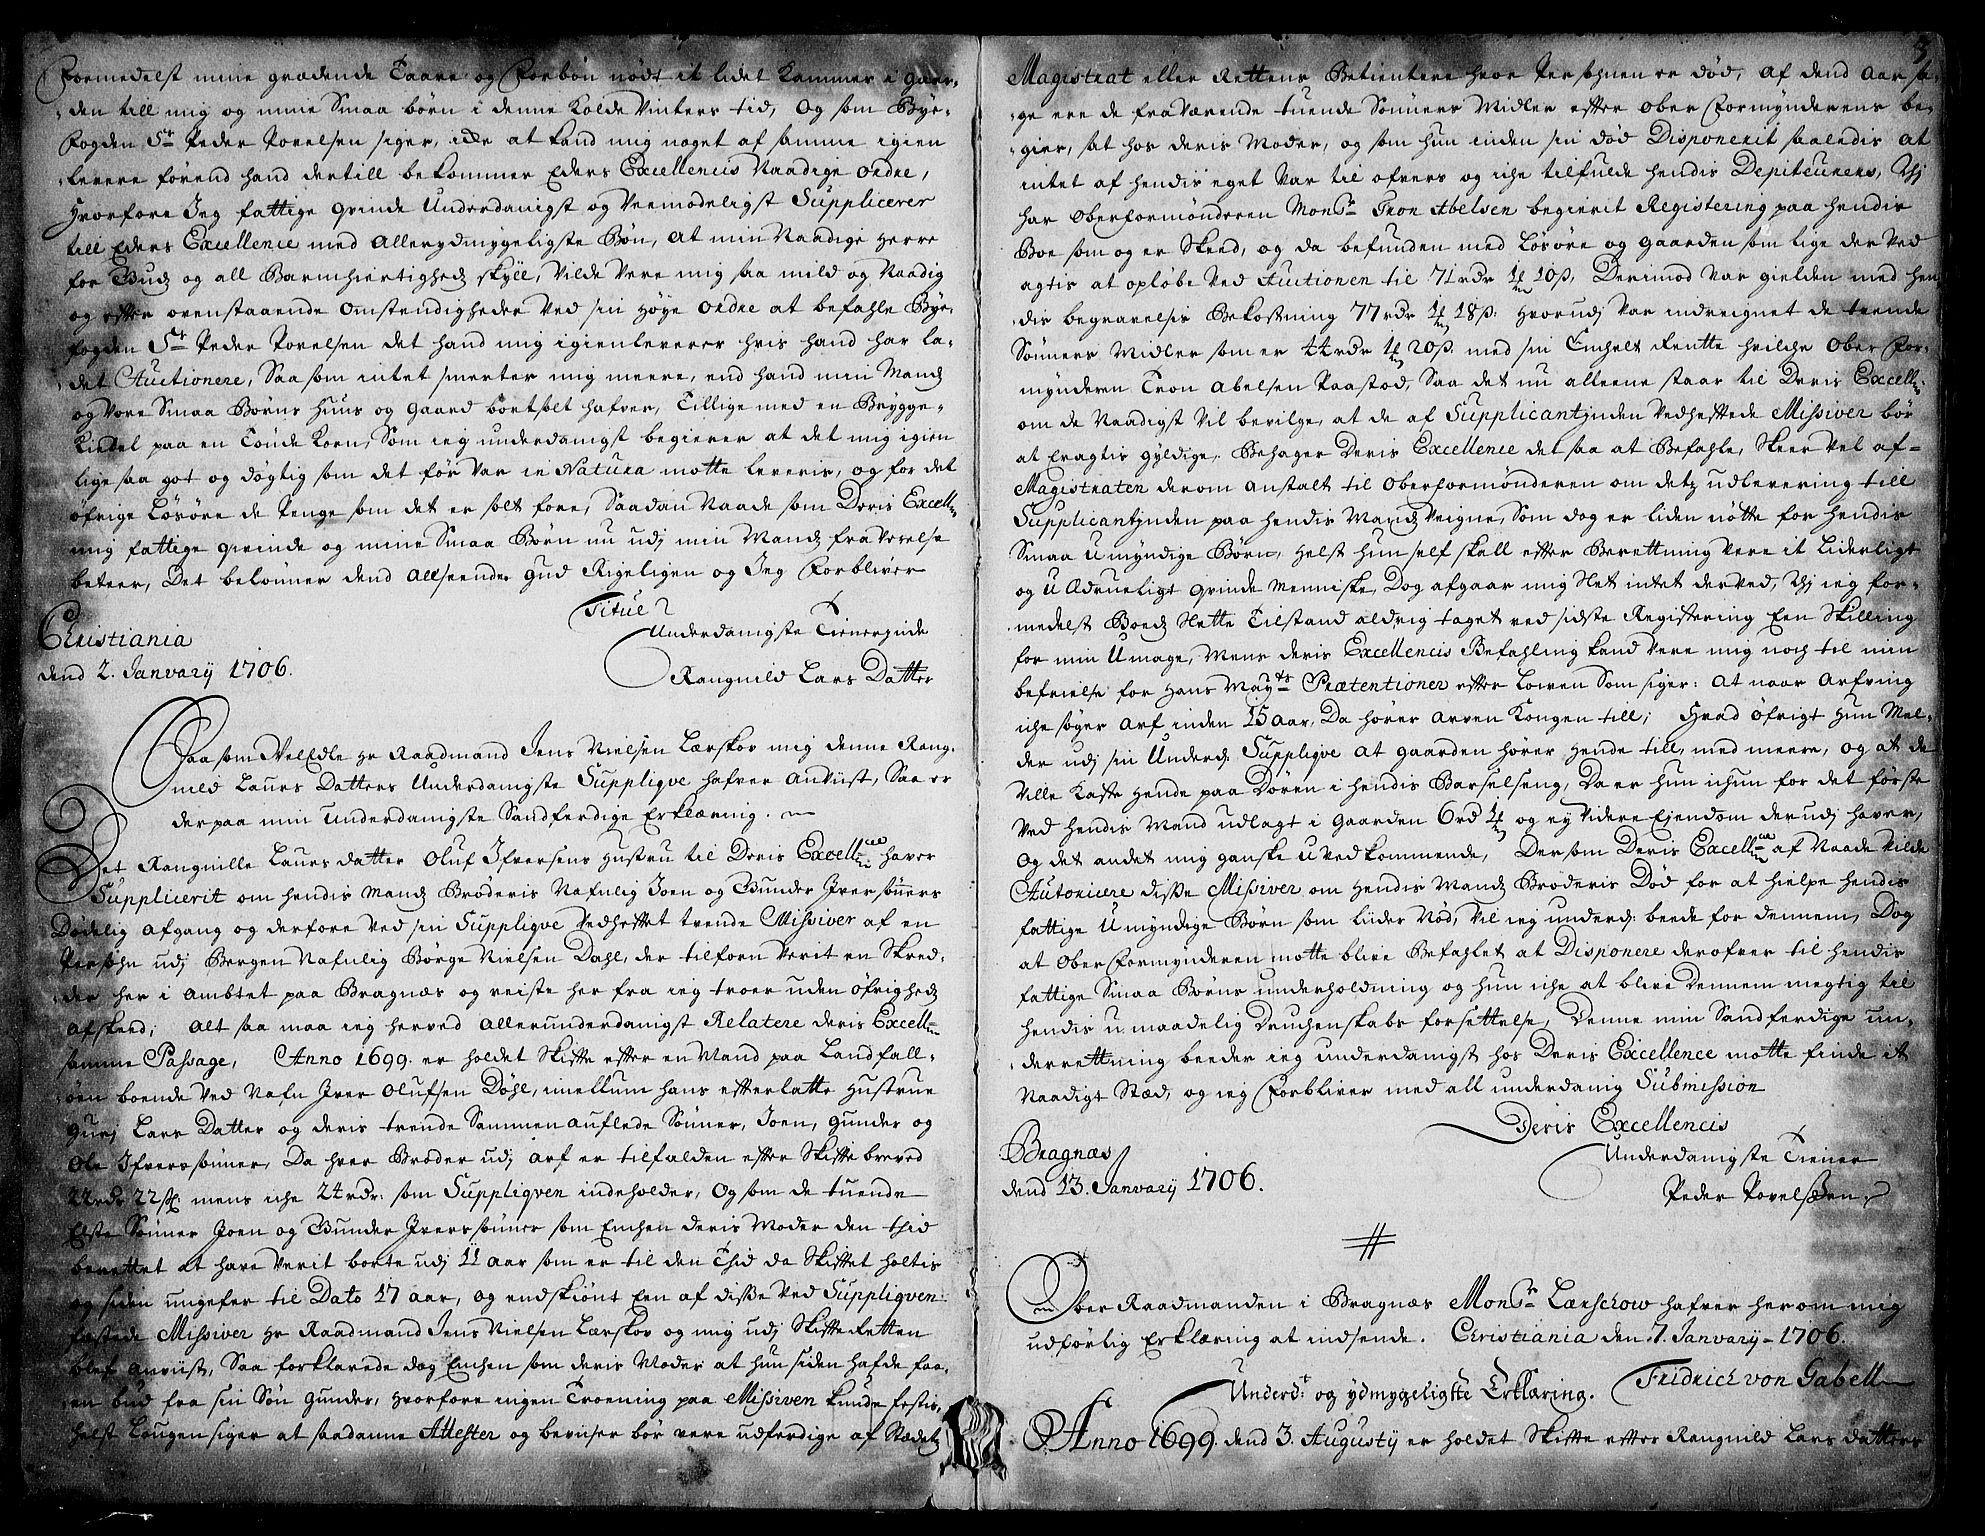 Formedelst mine grædende Taare og Forbøn nødt it lidet Kammer i gaar-
den till mig og mine Smaa børn i denne kolde Vinters tid, Og som Bÿe-
fogden Sr Peder Povelsen siger, icke at kand mig noget af samme igien
levere förend hand dertill bekommer Eders Excellencis Naadige ordre,
Hvorfore Jeg fattige qvinde Underdanigst og Veemodeligst Supplicerer
till Eders Excellence med Allerydmygeligste Bøn, at min Naadige Herre
for Gudz og all Barmhiertighedz skÿll, vilde vere mig saa mild og Naadig
og efter ovenstaaende Omstendigheder ved sin Høÿe ordre at befahle Bÿe-
fogden Sr Peder Povelsen det hand mig igienleverer hvis hand har la-
det Auctionere, Saa som intet smerter mig meere, end hand min Mandz
og vore Smaa Børns Huus og gaard bortsolt hafver, Tillige med en Brÿgge-
Kiedel paa en Tønde Korn, Som ieg underdanigst begierer at det mig igien
lige saa got og døgtig som det för var in Natura motte leveris, og for det
øfrige Løsøre de Penge som det er solt fore, Saadan Naade som Deris Excell:
mig fattige qvinde og mine Smaa Børn nu udj min Mandz fraverelse
beteer, Det belønner dend Allseende Gud Rigeligen og Jeg Forbliver
Titul
Christiania
dend 2. Januarÿ 1706.
Underdanigste Tienerinde
Rangnild Lars Datter
Saa som VelEdle Hr Raadmand Jens Nielsen Lærskov mig denne Rang-
nild Laurs Datters Underdanigste Suppliqve hafver anviist, Saa er
derpaa min underdanigste Sandferdige Erklæring.
Det Rangnille Laurs datter Oluf Ifversens Hustru til Deris Excellence haver
Supplicerit om hendis Mandz Brøderis Nafnlig Joen og Gunder Iversønners
Dødelig Afgang og derfore ved sin Suppliqve vedheftet trende Missiver af en
Persohn udj Bergen Nafnlig Børge Nielsen Dahl, der tilforn verit en Skred-
der her i Ambtet paa Bragnæs og reiste her fra ieg troer uden Øfrighedz
Afskeed; Alt saa maa ieg herved allerunderdanigst Relatere deris Excell:
samme Passage, Anno 1699. er holdet Skifte efter en Mand paa Landfall-
øen boende ved Nafn Iver Olufsen Döhl, imellum hans efterlatte Hustrue
Gurj Lars Datter og deris trende Sammen auflede Sönner, Joen, Gunder og
Ole Ifversønner, Da hver Broder udj arf er tilfalden efter Skifte brevet
22 rdr 22 sk: mens iche 24 rdr: som Suppliqven indeholder, Og som de tuende
Elste Sönner Joen og Gunder Iversönner som Enchen deris Moder den thid
berettet at have verit borte udj 11 aar som er til den Thid da Skiftet holtis
og siden ungefer til Dato 17 aar, og endskiønt Een af disse ved Suppliqven
feestede Missiver Hr Raadmand Jens Nielsen Lærskov og mig udj Skifte Retten
blef anviist, Saa forklarede dog Enchen som deris Moder at hun siden hafde faa-
en bud fra sin Søn Gunder, hvorfore ingen Troening paa Missiven kunde festis,
helst Lougen siger at saadanne Attester og beviiser bør vere udferdige af Stedetz
Magistrat eller Rettens Betientere hvor Personen er død; af dend Aarsa-
ge ere de fraværende tuende Sönners Midler efter Ober Formynderens be-
gier, sat hos deris Moder, og som hun inden sin død Disponerit saaledis at
intet af hendis eget var til ofvers og iche tilfulde hendis Depiteurens, Thj
har Oberformönderen Monsr Tron Abelsen begierit Registering paa hendis
Boe som og er Skeed, og da befunden med Løsøre og gaarden som lige der ved
agtis at opløbe ved Auctionen til 71 rdr 1 10 s, Derimod var gielden med hen
dis begravelsis Bekostning 77 rdr 1 18 s: Hvorudj var indreignet de tvende
Sönners Midler som er 44 rdr 1 20 s. med sin Enchelt Rentte hvilche Ober For-
mynderen Tron Abelsen Paastod, Saa det nu alleene staar til Deris Excell:
om de Naadigst vil bevilge, at de af Supplicantinden vedheftede Missiver bör
at eragtis gyldige, Behager Deris Excellence det saa at Befahle, Skeer vel af
Magistraten derom anstalt til Oberformönderen om detz udlevering till
Supplicantinden paa hendis Mandz Veigne, Som dog er liden nötte for hendis
Smaa U myndige Børn, Helst hun self skall efter Berettning vere it Liderligt
og U Ædrueligt Qvinde Menniske, Dog afgaar mig Slet intet derved, Thj ieg for-
medelst Boedz Slette Tilstand aldrig taget ved sidste Registering Een Skilling
for min Umage, Mens deris Excellencis Befahling kand vere mig noch til min
befrielse for Hans Mayts Prætentioner efter Loven Som siger: at naar Arfving
iche søger Arf inden 15 aar, Da hører Arven Kongen till; Hvad øfrigt hun Mel-
der udj sin Underd: Suppliqve at gaarden hører hende till, med meere, og at de
ville Kaste hende paa Døren i hendis Barselseng, Da er hun ichun for det første
ved Hendis Mand udlagt i Gaarden 6 rd 1 og ey videre Ejendom der udj haver,
Og det andet mig ganske u vedkommende, Dersom Deris Excellence af Naade vilde
Autoricere disse Missiver om Hendis Mandz Brøderis Død for at hielpe hendis
fattige U myndige Børn som lider Nød, vil ieg underd: beede for dennem, Dog
at Ober Formynderen motte blive Befahlet at Disponere derofver til hendis
fattige Smaa Børns underholdning og hun iche at blive Dennem megtig til
hendis u maadelig Druchenskabs forsettelse, Denne min Sandferdige un-
derrettning beeder ieg underdanigst hos Deris Excellence motte finde it
Naadigt Stæd, og ieg Forbliver med all underdanig Submission
Deris Excellencis
Bragnæs
dend 13. Januarÿ 1706.
Underdanigste Tiener
Peder Povelssen
Ober Raadmanden i Bragnæs Monsr Lærschow hafver herom mig
udførlig Erklæring at indsende. Christiania den 7. Januarÿ 1706.
Fridrich von Gabell
Underd: og ydmygeligste Erklæring.
Anno 1699. dend 3. Augustÿ er holdet Skifte efter Rangnild Lars Datters